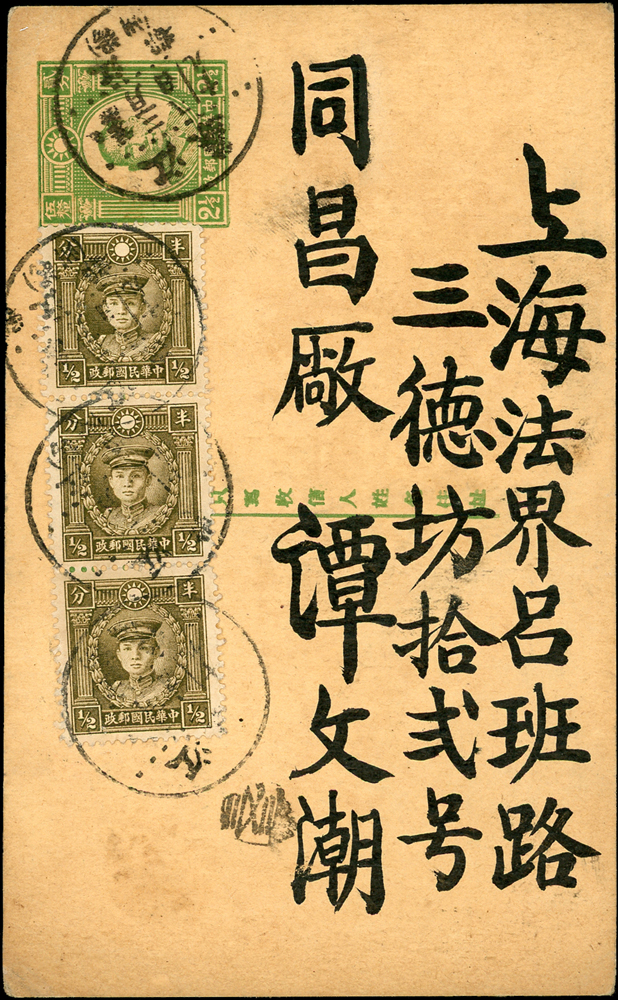 上海法界呂班路
三德坊拾弍号
同昌厰 譚文潮
寫收信人姓
2½
半分
中華民國郵政
½ ½
半分
中華民國郵政
½ ½
半分
中華民國郵政
½ ½